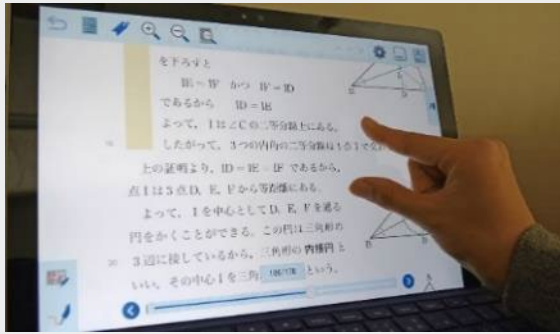 を下ろすと
IE=IF かつ IF=ID
であるから ID=IE
よって，Iは∠Cの二等分線上にある。
したがって，3つの内角の二等分線は1点Iで
上の証明より，ID=IE=IF であるから，
点Iは3点D，E，Fから等距離にある。
よって，Iを中心としてD，E，Fを通る
円をかくことができる。この円は三角形の
20 3辺に接しているから，三角形の内接円と
いい，その中心Iを三角 186/178 という。